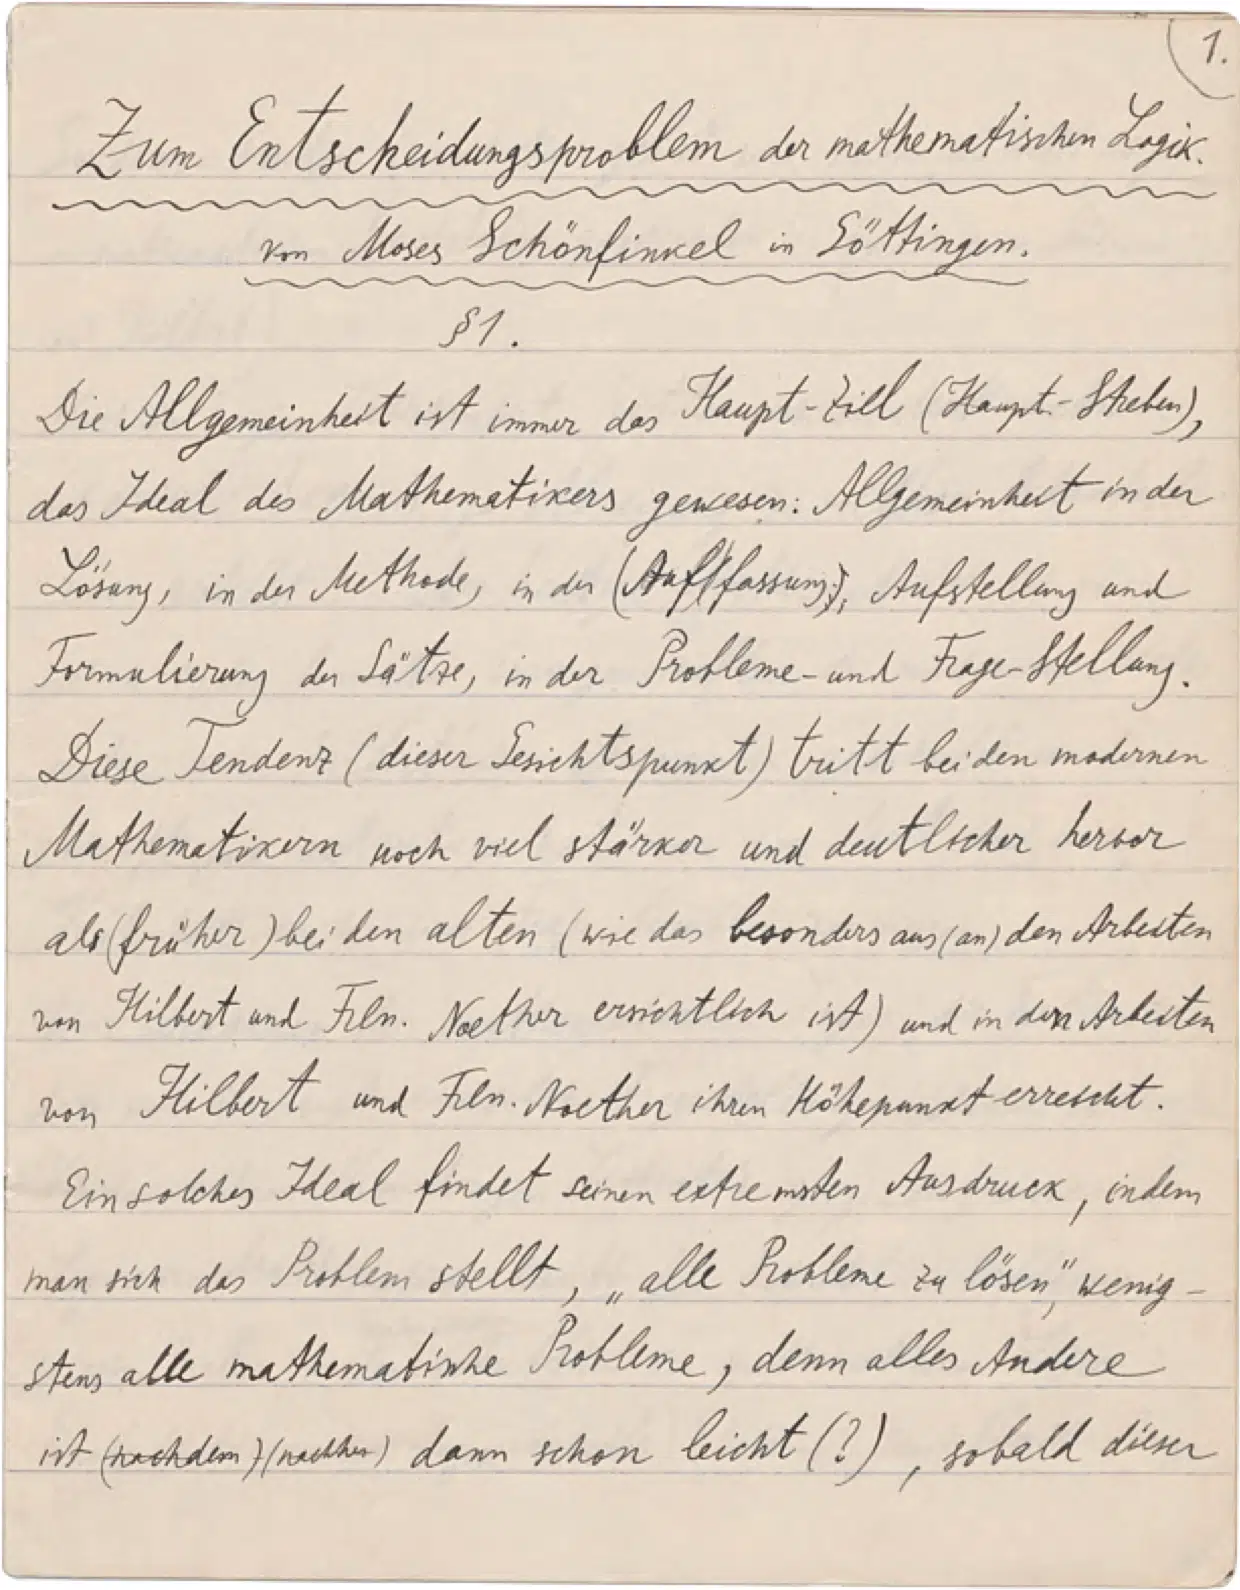 1.
Zum Entscheidungsproblem der mathematischen Logik.
von Moses Schönfinkel in Göttingen.
§1.
Die Allgemeinheit ist immer das Haupt-Ziel (Haupt-Streben),
das Ideal des Mathematikers gewesen: Allgemeinheit in der
Lösung, in der Methode, in der (Auffassung), Aufstellung und
Formulierung der Sätze, in der Probleme- und Frage-Stellung.
Diese Tendenz (dieser Gesichtspunkt) tritt bei den modernen
Mathematikern noch viel stärker und deutlicher hervor
als (früher) bei den alten (wie das besonders aus (an) den Arbeiten
von Hilbert und Frln. Noether ersichtlich ist) und in den Arbeiten
von Hilbert und Frln. Noether ihren Höhepunkt erreicht.
Ein solches Ideal findet seinen extremsten Ausdruck, indem
man sich das Problem stellt, „alle Probleme zu lösen", wenig-
stens alle mathematische Probleme, denn alles Andere
ist (nachdem) (nachher) dann schon leicht (?), sobald dieser